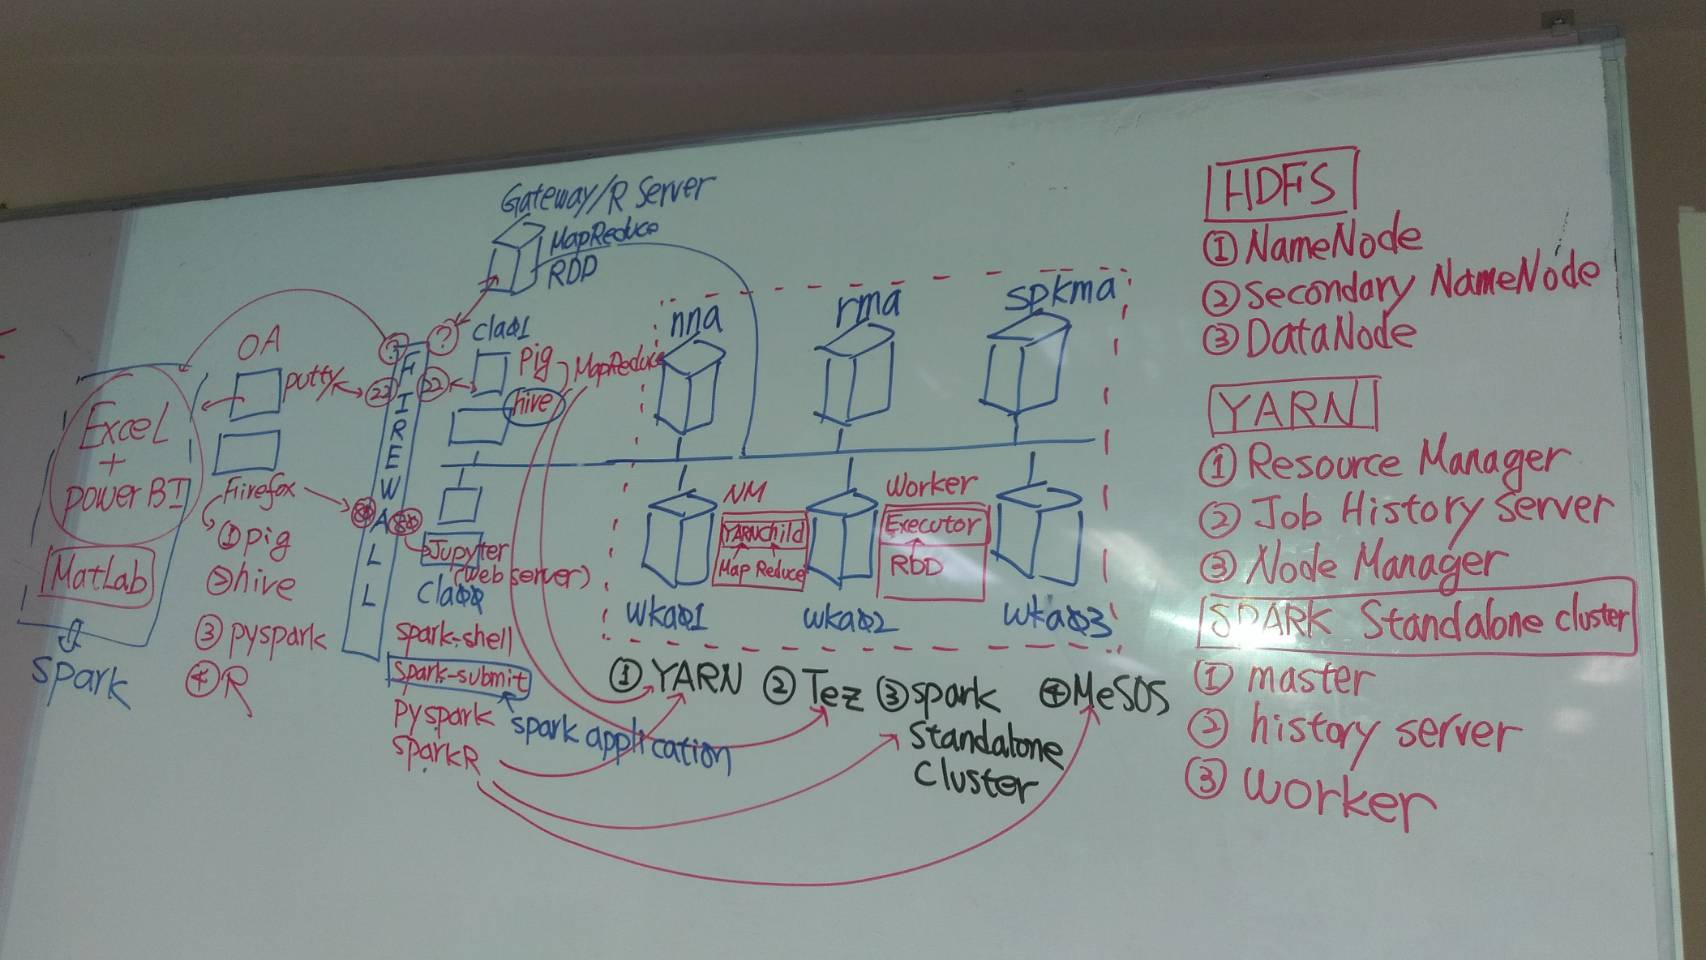 Gateway/R Server
MapReduce
RDD
OA
putty
22
Excel
+
power BI
MatLab
Spark
Firefox
①pig
②hive
③pyspark
④R
?
?
FIREWALL
22
cla01
pig
hive
MapReduce
Jupyter
(web server)
spark-shell
spark-submit
pyspark
sparkR
spark application
nna
rma
spkma
NM
YARNchild
Map Reduce
Worker
Executor
RDD
wka01
wka02
wka03
①YARN
②Tez
③spark
Standalone
Cluster
④MeSOS
HDFS
①NameNode
②secondary NameNode
③DataNode
YARN
①Resource Manager
②Job History Server
③Node Manager
SPARK Standalone cluster
①master
②history server
③worker